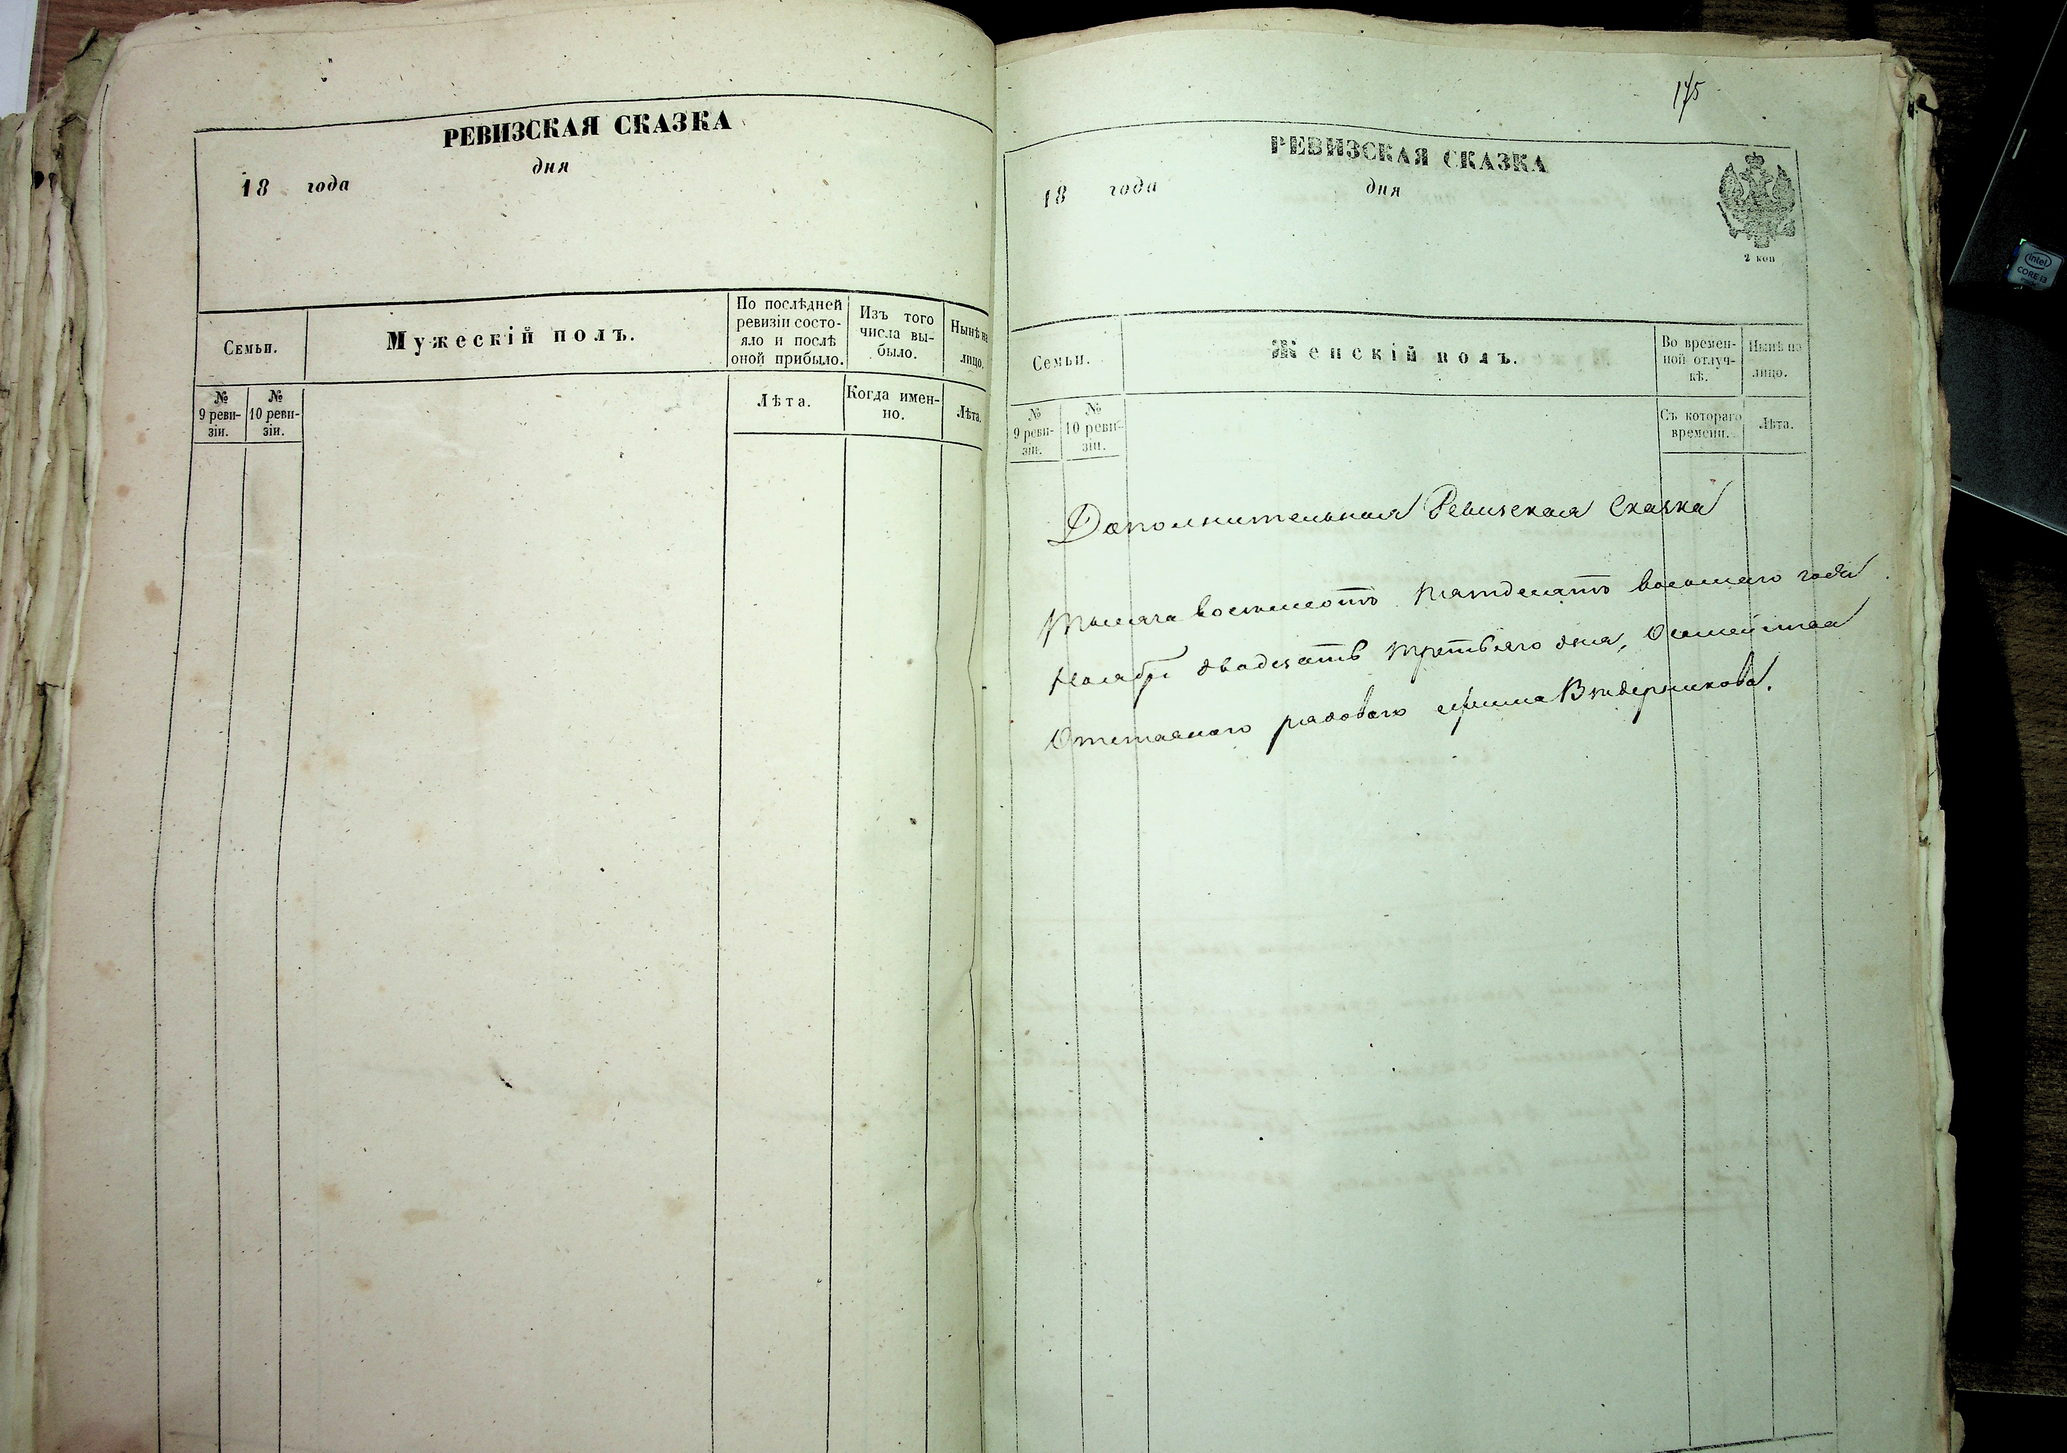 РЕВИЗСКАЯ СКАЗКА
дня
18 года
Семьи.
Мужескій полъ.
По послѣдней
ревизіи состо-
яло и послѣ
оной прибыло.
Изъ того
числа вы-
было.
Нынѣ на
лицо.
№
9 реви-
зіи.
№
10 реви-
зіи.
Лѣта.
Когда имен-
но.
Лѣта.
175
РЕВИЗСКАЯ СКАЗКА
дня
18 года
2 коп
Семьи.
Женскій полъ.
Во времен-
ной отлуч-
кѣ.
Нынѣ на
лицо.
№
9 реви-
зіи.
№
10 реви-
зіи.
Съ котораго
времени.
Лѣта.
Дополнительная Ревизская Сказка
тысяча восемьсотъ пятдесятъ восьмаго года
Ноября двадцать третьяго дня, О семействѣ
Отставнаго рядоваго